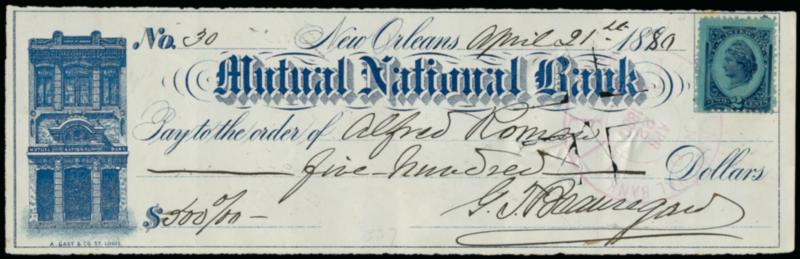 No. 30 New Orleans April 21st 1880
Mutual National Bank
Pay to the order of Alfred Roman
five hundred Dollars
$500 00/00
G. T. Beauregard
MUTUAL NATIONAL BANK
A. GAST & CO. ST. LOUIS
2 CENTS
L BANK